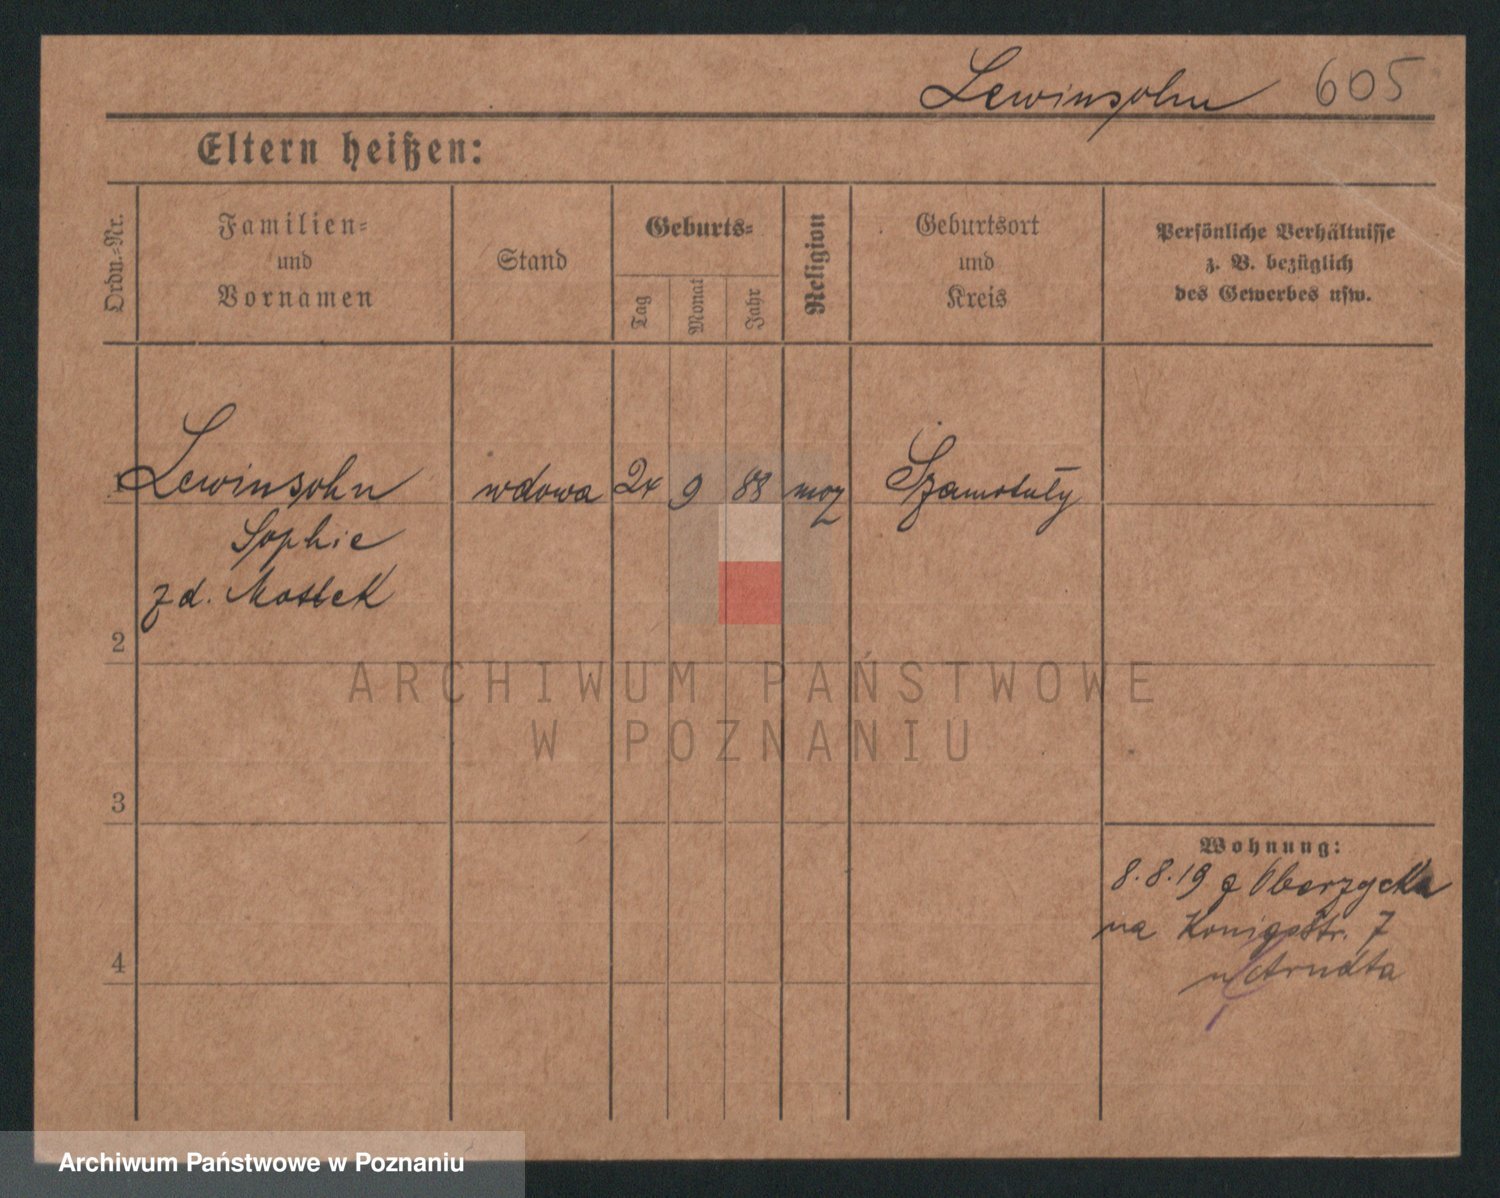 Lewinsohn 605
Eltern heißen:
Ordn.=Nr.
Familien=
und
Vornamen
Stand
Geburts=
Tag
Monat
Jahr
Religion
Geburtsort
und
Kreis
Persönliche Verhältnisse
z. B. bezüglich
des Gewerbes usw.
1 Lewinsohn wdowa 24 9 88 moż Szamotuły
Sophie
zd. Mottek
2
3
4
Wohnung:
8.8.19 z Oberzycka
na Konigsstr. 7
u Arndta
ARCHIWUM PAŃSTWOWE
W POZNANIU
Archiwum Państwowe w Poznaniu